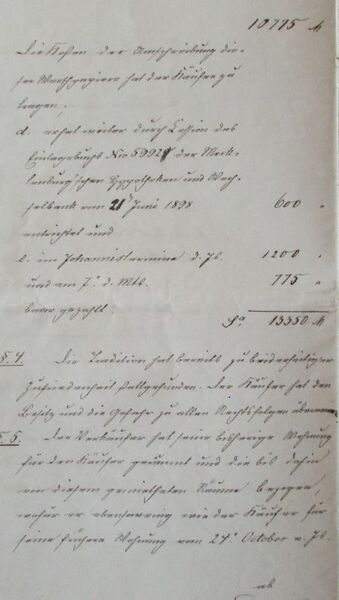 10775 M
Die Kosten der Umschreibung die-
ser Werthpapiere hat der Käufer zu
tragen,
d. nebst weiter durch Cession des
Einlagebuchs No 5992 der Meck-
lenburg'schen Hypotheken und Wech-
selbank vom 21t Juni 1898 600 "
entrichtet und
e. im Johannistermine d. Js. 1200 "
und am 7. d. Mts. 775 "
baar gezahlt.
Sa 13350 M
§. 4. Die Tradition hat bereits zu beiderseitiger
Zufriedenheit stattgefunden. Der Käufer hat den
Besitz und die Gefahr zu allen Rechtsfolgen übernommen
§. 5. Der Verkäufer hat seine bisherige Wohnung
für den Käufer geräumt und die bis dahin
von diesem gemietheten Räume bezogen,
wofür er ebensowenig wie der Käufer für
seine frühere Wohnung vom 24t October v. Js.
ab